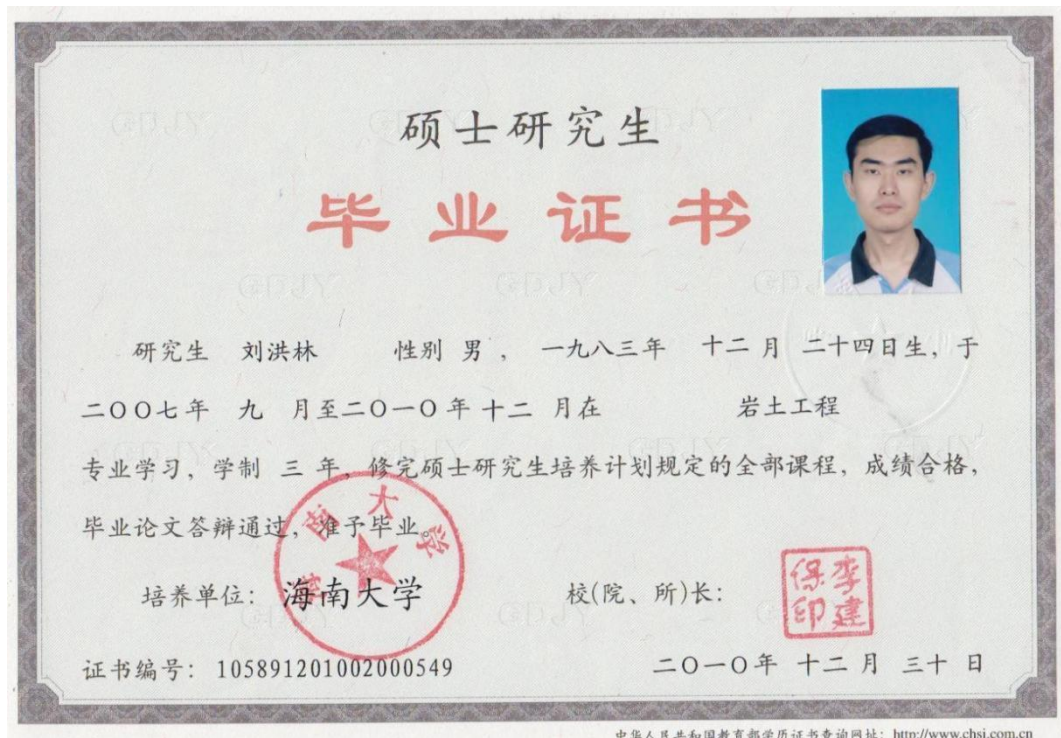 硕士研究生
毕业证书
研究生 刘洪林 性别 男 ， 一九八三年 十二 月 二十四日生，于
二〇〇七年 九 月至二〇一〇 年 十二 月在 岩土工程
专业学习，学制 三 年，修完硕士研究生培养计划规定的全部课程，成绩合格，
毕业论文答辩通过，准予毕业。
海南大学
培养单位： 海南大学 校(院、所)长：
李建保印
证书编号： 105891201002000549 二〇一〇年 十二 月 三十 日
中华人民共和国教育部学历证书查询网址：http://www.chsi.com.cn